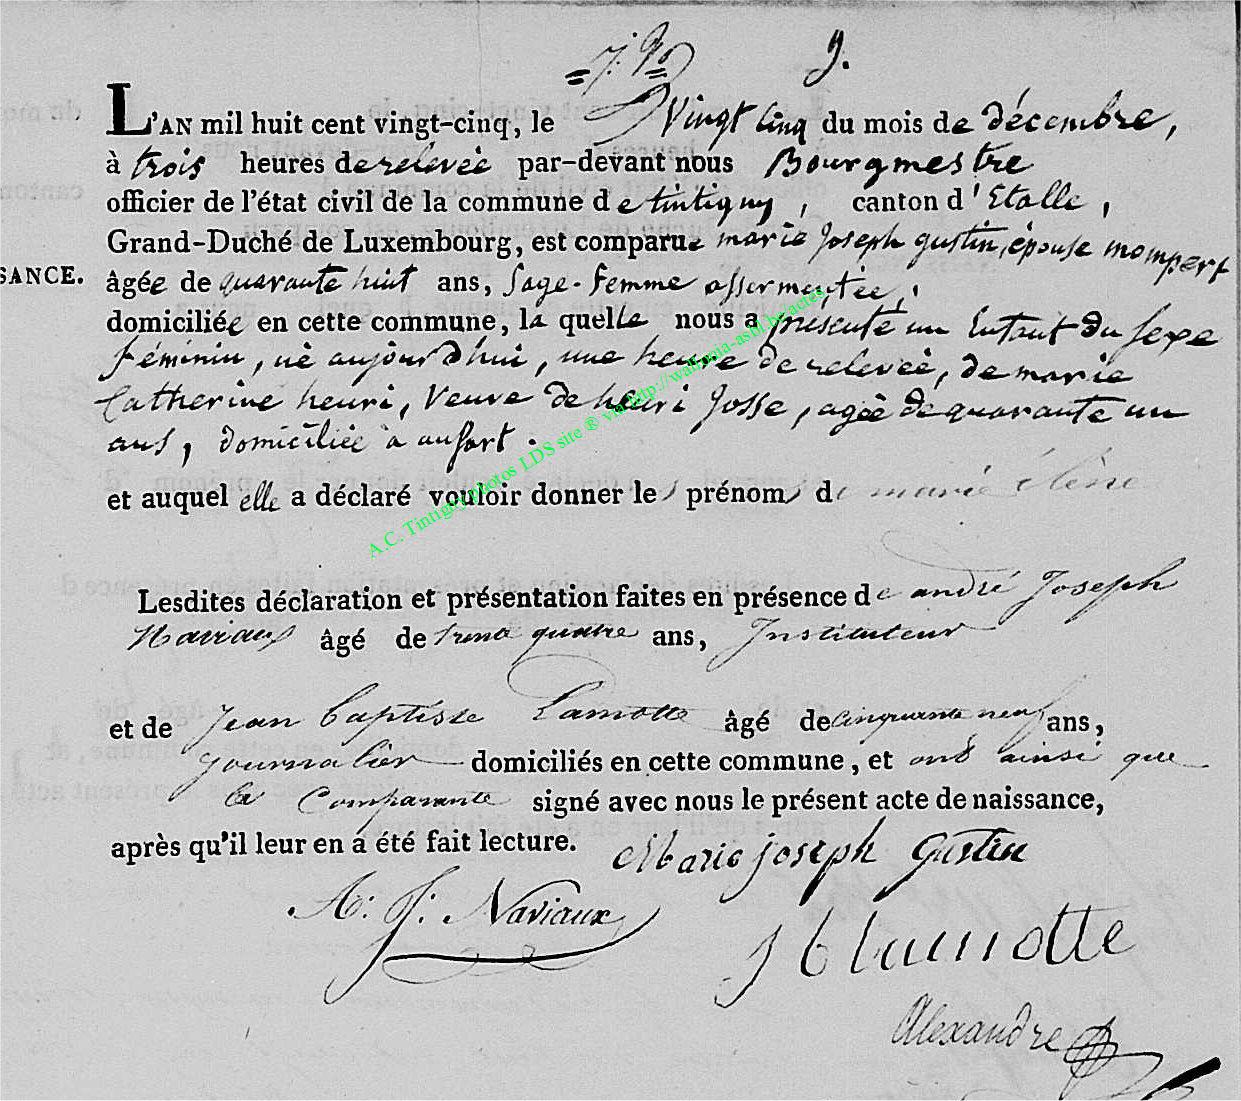 9.
L'AN mil huit cent vingt-cinq, le Vingt Cinq du mois de décembre,
à trois heures de relevée par-devant nous Bourgmestre
officier de l'état civil de la commune de tintigny, canton d'Etalle,
Grand-Duché de Luxembourg, est comparue marie Joseph gustin, épouse mompert
SANCE.
âgée de quarante huit ans, Sage-femme assermentée,
domiciliée en cette commune, la quelle nous a présenté un Enfant du Sexe
féminin, né aujourd'hui, une heure de relevée, de marie
Catherine henri, Veuve de henri Josse, agée de quarante un
ans, domiciliée a ansart.
et auquel elle a déclaré vouloir donner les prénoms de marie élène
Lesdites déclaration et présentation faites en présence de andré Joseph
Naviaux âgé de trente quatre ans, Instituteur
et de Jean baptiste Lamotte âgé de cinquante neuf ans,
journalier domiciliés en cette commune, et ont ainsi que
la Comparante signé avec nous le présent acte de naissance,
après qu'il leur en a été fait lecture. Marie joseph gustin
A: J: Naviaux
J b lamotte
Alexandre
A.C. Tintigny photos LDS site ® via http://wallonia-asbl.be/actes